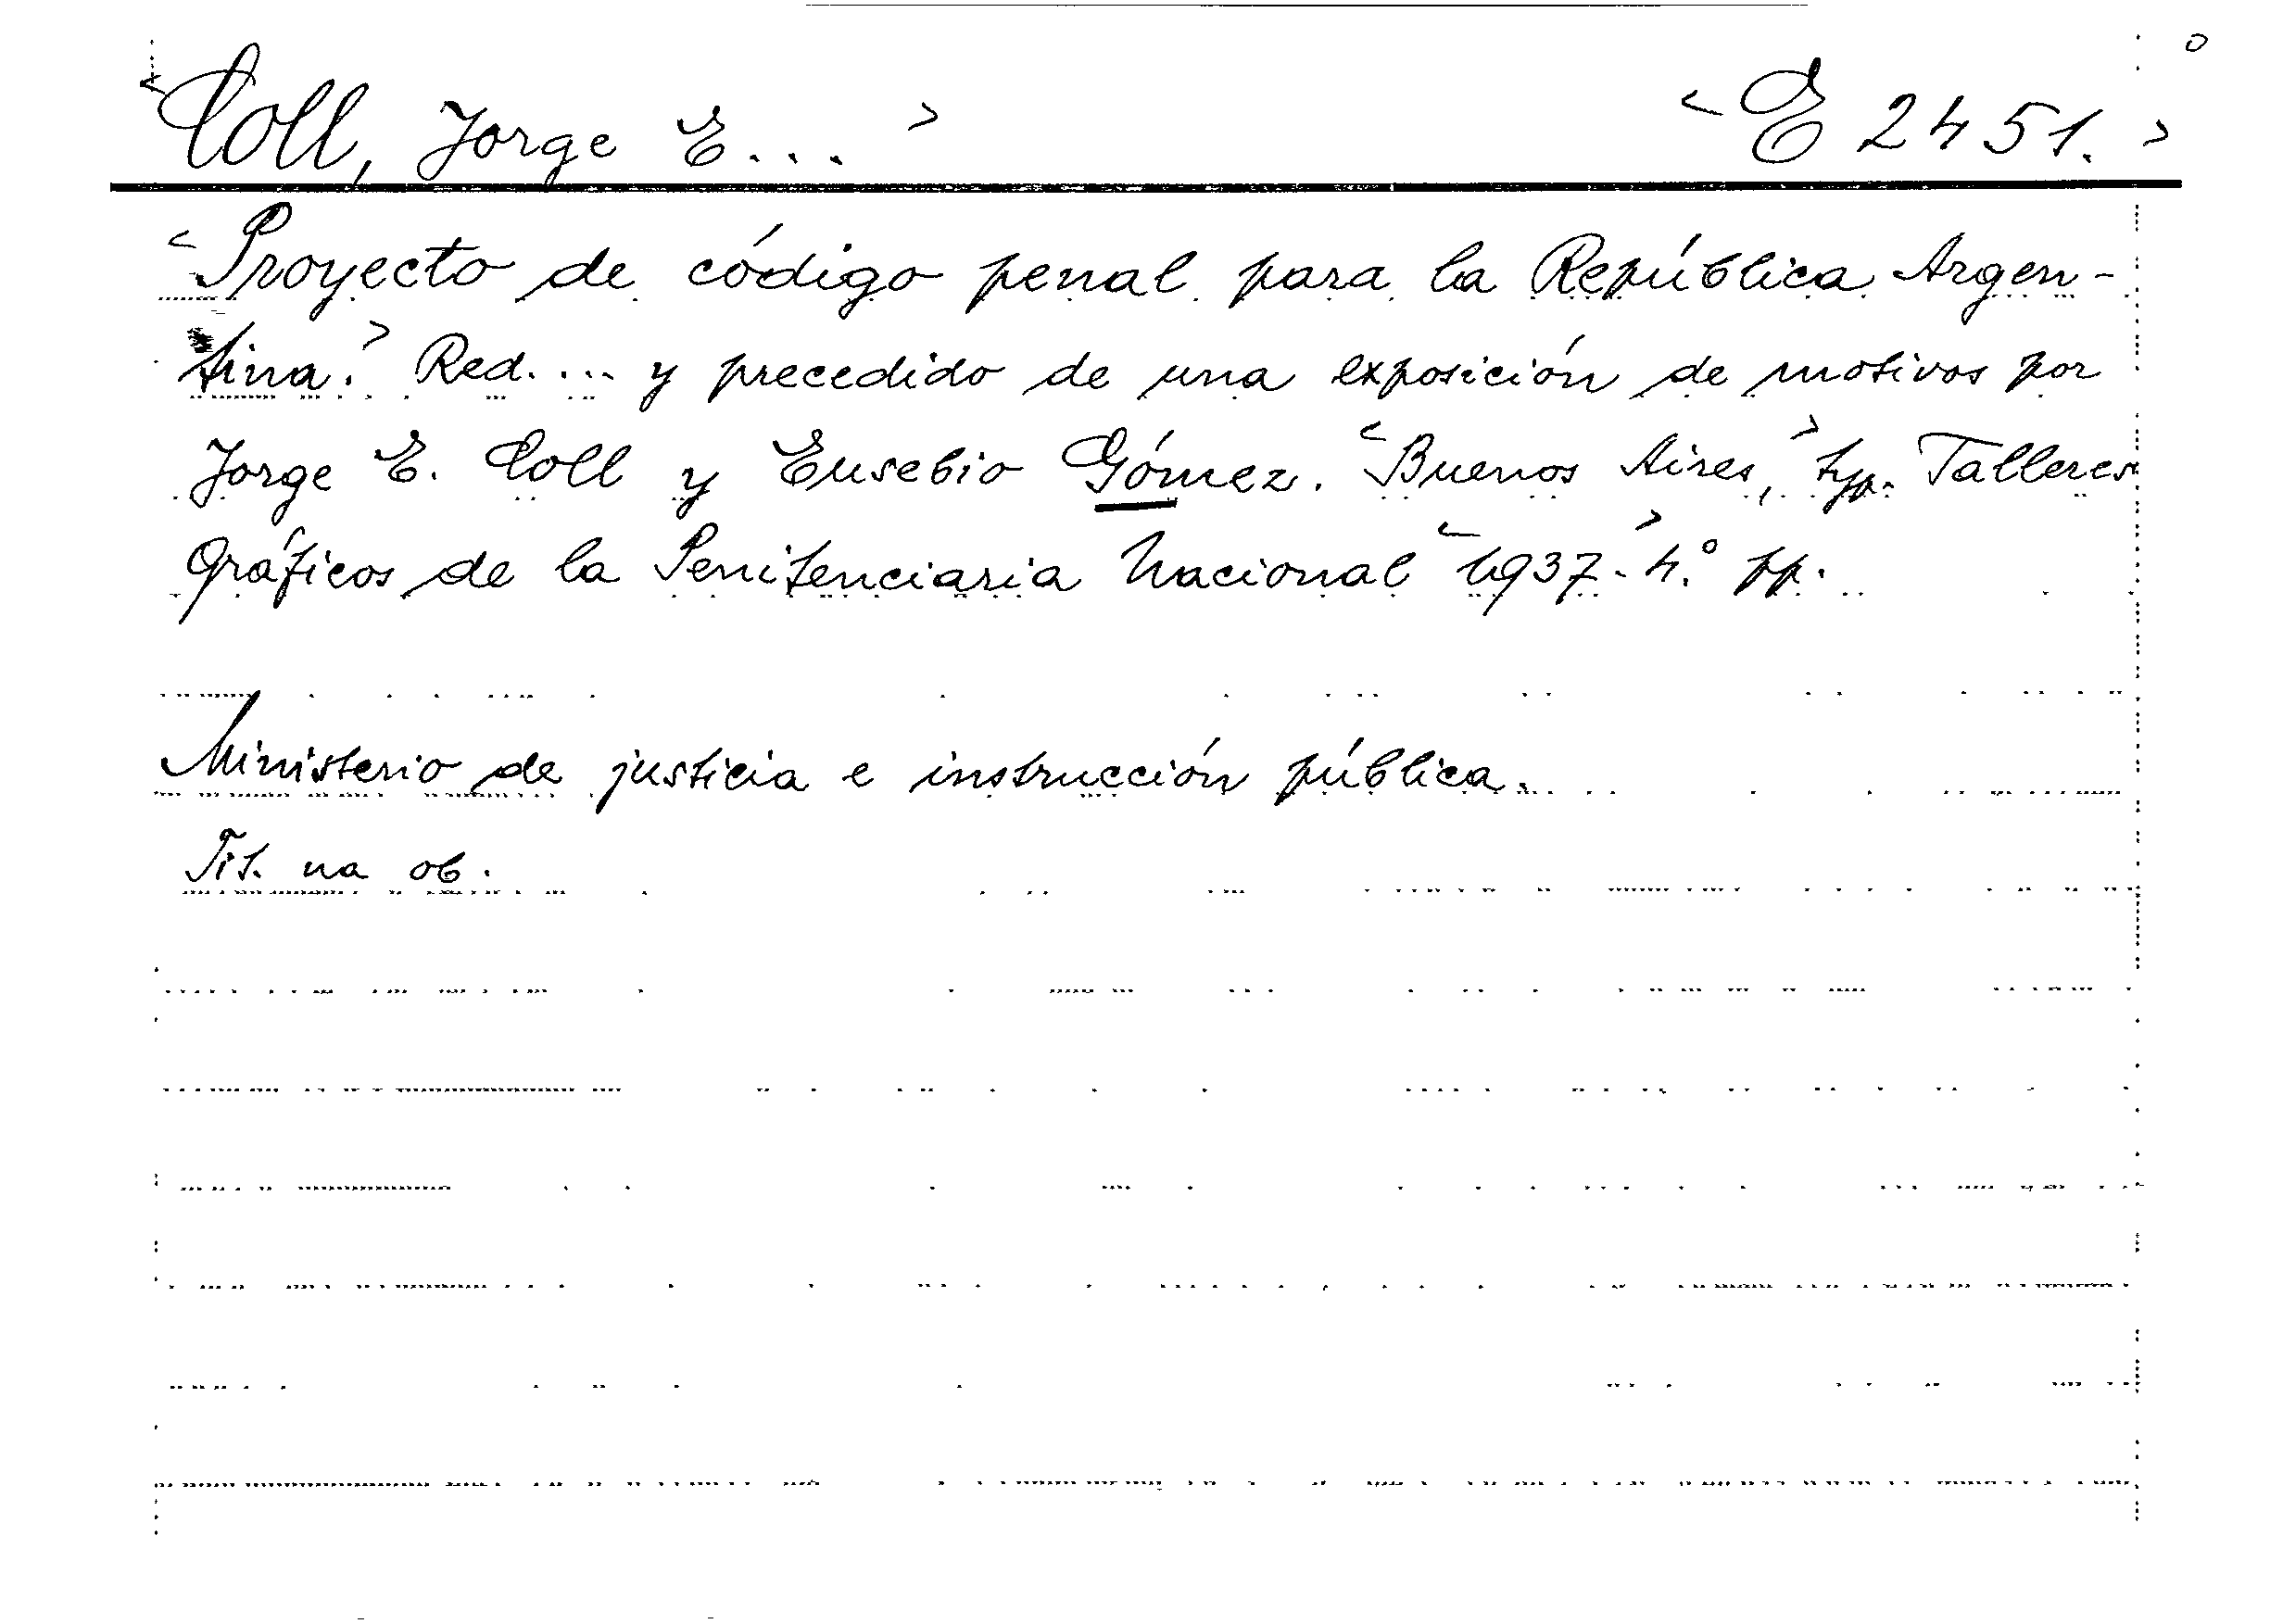 <Coll, Jorge E...> <E 2451.>
<Proyecto de código penal para la República Argen-
tina.> Red.... y precedido de una exposición de motivos por
Jorge E. Coll y Eusebio Gómez. <Buenos Aires,> typ. Talleres
Gráficos de la Penitenciaria Nacional <1937.> 4.° pp.
Ministerio de justicia e instrucción pública.
Tit. na ob.